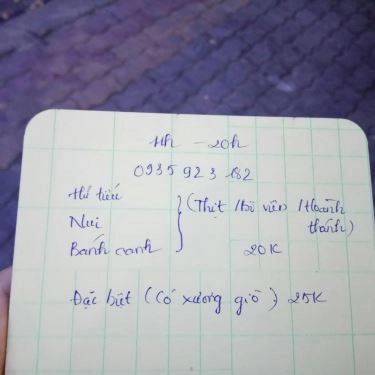 11h - 20h
0935 923 182
Hủ tiếu
Nui
Bánh canh
} (Thịt / Bò viên / Hoành thánh)
20K
Đặc biệt (Có xương giò) 25K